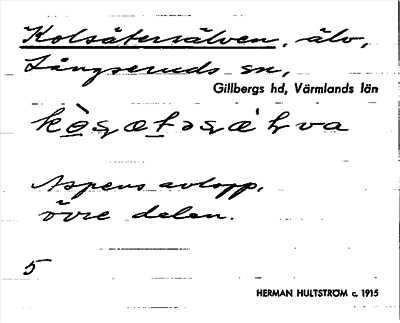 Kolsätersälven, älv,
Långseruds sn,
Gillbergs hd, Värmlands län
Aspens avlopp,
övre delen.
5
HERMAN HULTSTRÖM c. 1915